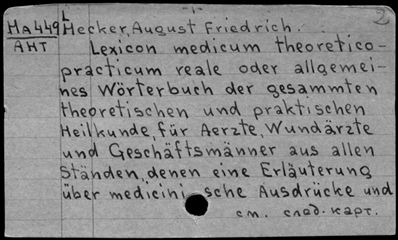 -1- 2
L
Ha449 Hecker, August Friedrich.
AHT Lexicon medicum theoretico-
practicum reale oder allgemei-
nes Wörterbuch der gesammten
theoretischen und praktischen
Heilkunde für Aerzte, Wundärzte
und Geschäftsmänner aus allen
Ständen, denen eine Erläuterung
über medicinische Ausdrücke und
см. след. карт.